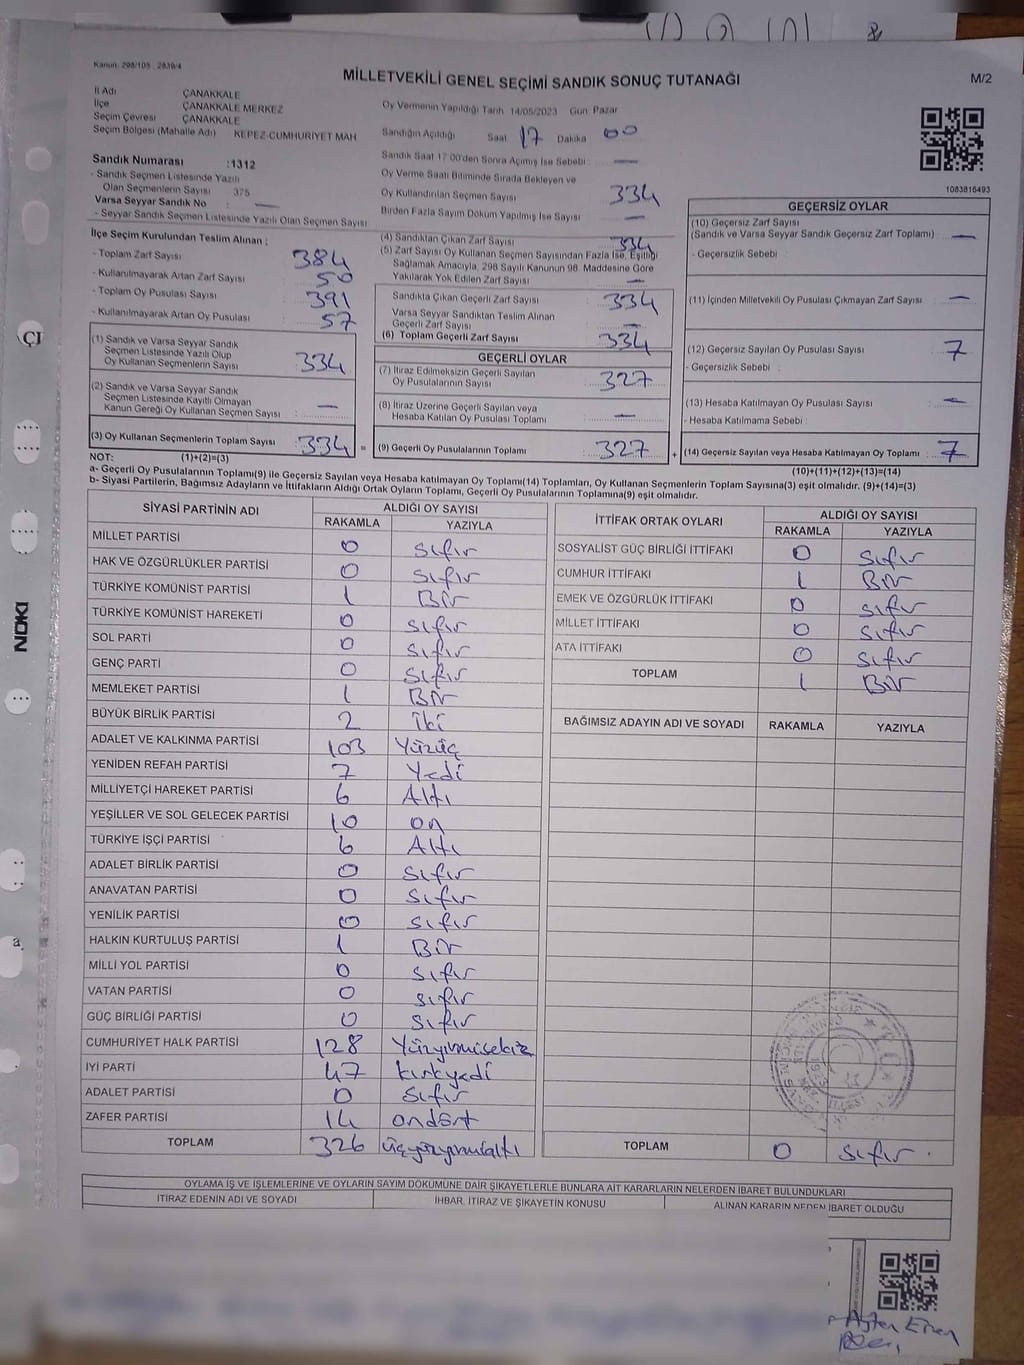 Kanun: 298/105 , 2839/4
MİLLETVEKİLİ GENEL SEÇİMİ SANDIK SONUÇ TUTANAĞI
M/2
İl Adı ÇANAKKALE
İlçe ÇANAKKALE MERKEZ
Seçim Çevresi ÇANAKKALE
Seçim Bölgesi (Mahalle Adı) KEPEZ-CUMHURİYET MAH
Oy Vermenin Yapıldığı Tarih 14/05/2023 Gün Pazar
Sandığın Açıldığı Saat 17 Dakika 00
Sandık Saat 17:00'den Sonra Açılmış İse Sebebi : —
Oy Verme Saati Bitiminde Sırada Bekleyen ve
Oy Kullandırılan Seçmen Sayısı 334
Birden Fazla Sayım Döküm Yapılmış İse Sayısı —
1083816493
Sandık Numarası :1312
- Sandık Seçmen Listesinde Yazılı
Olan Seçmenlerin Sayısı 375
Varsa Seyyar Sandık No : —
- Seyyar Sandık Seçmen Listesinde Yazılı Olan Seçmen Sayısı
İlçe Seçim Kurulundan Teslim Alınan ;
- Toplam Zarf Sayısı 384
- Kullanılmayarak Artan Zarf Sayısı 50
- Toplam Oy Pusulası Sayısı 391
- Kullanılmayarak Artan Oy Pusulası 57
(1) Sandık ve Varsa Seyyar Sandık
Seçmen Listesinde Yazılı Olup
Oy Kullanan Seçmenlerin Sayısı 334
(2) Sandık ve Varsa Seyyar Sandık
Seçmen Listesinde Kayıtlı Olmayan
Kanun Gereği Oy Kullanan Seçmen Sayısı —
(3) Oy Kullanan Seçmenlerin Toplam Sayısı 334 =
(4) Sandıktan Çıkan Zarf Sayısı 334
(5) Zarf Sayısı Oy Kullanan Seçmen Sayısından Fazla İse, Eşitliği
Sağlamak Amacıyla, 298 Sayılı Kanunun 98. Maddesine Göre
Yakılarak Yok Edilen Zarf Sayısı —
Sandıkta Çıkan Geçerli Zarf Sayısı 334
Varsa Seyyar Sandıktan Teslim Alınan
Geçerli Zarf Sayısı —
(6) Toplam Geçerli Zarf Sayısı 334
GEÇERLİ OYLAR
(7) İtiraz Edilmeksizin Geçerli Sayılan
Oy Pusulalarının Sayısı 327
(8) İtiraz Üzerine Geçerli Sayılan veya
Hesaba Katılan Oy Pusulası Toplamı —
(9) Geçerli Oy Pusulalarının Toplamı 327 +
GEÇERSİZ OYLAR
(10) Geçersiz Zarf Sayısı
(Sandık ve Varsa Seyyar Sandık Geçersiz Zarf Toplamı) —
- Geçersizlik Sebebi :
(11) İçinden Milletvekili Oy Pusulası Çıkmayan Zarf Sayısı —
(12) Geçersiz Sayılan Oy Pusulası Sayısı 7
- Geçersizlik Sebebi :
(13) Hesaba Katılmayan Oy Pusulası Sayısı —
- Hesaba Katılmama Sebebi :
(14) Geçersiz Sayılan veya Hesaba Katılmayan Oy Toplamı 7
NOT: (1)+(2)=(3)
(10)+(11)+(12)+(13)=(14)
a- Geçerli Oy Pusulalarının Toplamı(9) ile Geçersiz Sayılan veya Hesaba katılmayan Oy Toplamı(14) Toplamları, Oy Kullanan Seçmenlerin Toplam Sayısına(3) eşit olmalıdır. (9)+(14)=(3)
b- Siyasi Partilerin, Bağımsız Adayların ve İttifakların Aldığı Ortak Oyların Toplamı, Geçerli Oy Pusulalarının Toplamına(9) eşit olmalıdır.
SİYASİ PARTİNİN ADI ALDIĞI OY SAYISI
RAKAMLA YAZIYLA
MİLLET PARTİSİ 0 Sıfır
HAK VE ÖZGÜRLÜKLER PARTİSİ 0 Sıfır
TÜRKİYE KOMÜNİST PARTİSİ 1 Bir
TÜRKİYE KOMÜNİST HAREKETİ 0 Sıfır
SOL PARTİ 0 Sıfır
GENÇ PARTİ 0 Sıfır
MEMLEKET PARTİSİ 1 Bir
BÜYÜK BİRLİK PARTİSİ 2 İki
ADALET VE KALKINMA PARTİSİ 103 Yüzüç
YENİDEN REFAH PARTİSİ 7 Yedi
MİLLİYETÇİ HAREKET PARTİSİ 6 Altı
YEŞİLLER VE SOL GELECEK PARTİSİ 10 on
TÜRKİYE İŞÇİ PARTİSİ 6 Altı
ADALET BİRLİK PARTİSİ 0 Sıfır
ANAVATAN PARTİSİ 0 Sıfır
YENİLİK PARTİSİ 0 Sıfır
HALKIN KURTULUŞ PARTİSİ 1 Bir
MİLLİ YOL PARTİSİ 0 Sıfır
VATAN PARTİSİ 0 Sıfır
GÜÇ BİRLİĞİ PARTİSİ 0 Sıfır
CUMHURİYET HALK PARTİSİ 128 Yüzyirmisekiz
İYİ PARTİ 47 kırkyedi
ADALET PARTİSİ 0 Sıfır
ZAFER PARTİSİ 14 ondört
TOPLAM 326 üçyüzyirmialtı
İTTİFAK ORTAK OYLARI ALDIĞI OY SAYISI
RAKAMLA YAZIYLA
SOSYALİST GÜÇ BİRLİĞİ İTTİFAKI 0 Sıfır
CUMHUR İTTİFAKI 1 Bir
EMEK VE ÖZGÜRLÜK İTTİFAKI 0 Sıfır
MİLLET İTTİFAKI 0 Sıfır
ATA İTTİFAKI 0 Sıfır
TOPLAM 1 Bir
BAĞIMSIZ ADAYIN ADI VE SOYADI RAKAMLA YAZIYLA
TOPLAM 0 Sıfır
OYLAMA İŞ VE İŞLEMLERİNE VE OYLARIN SAYIM DÖKÜMÜNE DAİR ŞİKAYETLERLE BUNLARA AİT KARARLARIN NELERDEN İBARET BULUNDUKLARI
İTİRAZ EDENİN ADI VE SOYADI İHBAR, İTİRAZ VE ŞİKAYETİN KONUSU ALINAN KARARIN NEDEN İBARET OLDUĞU
NOKI